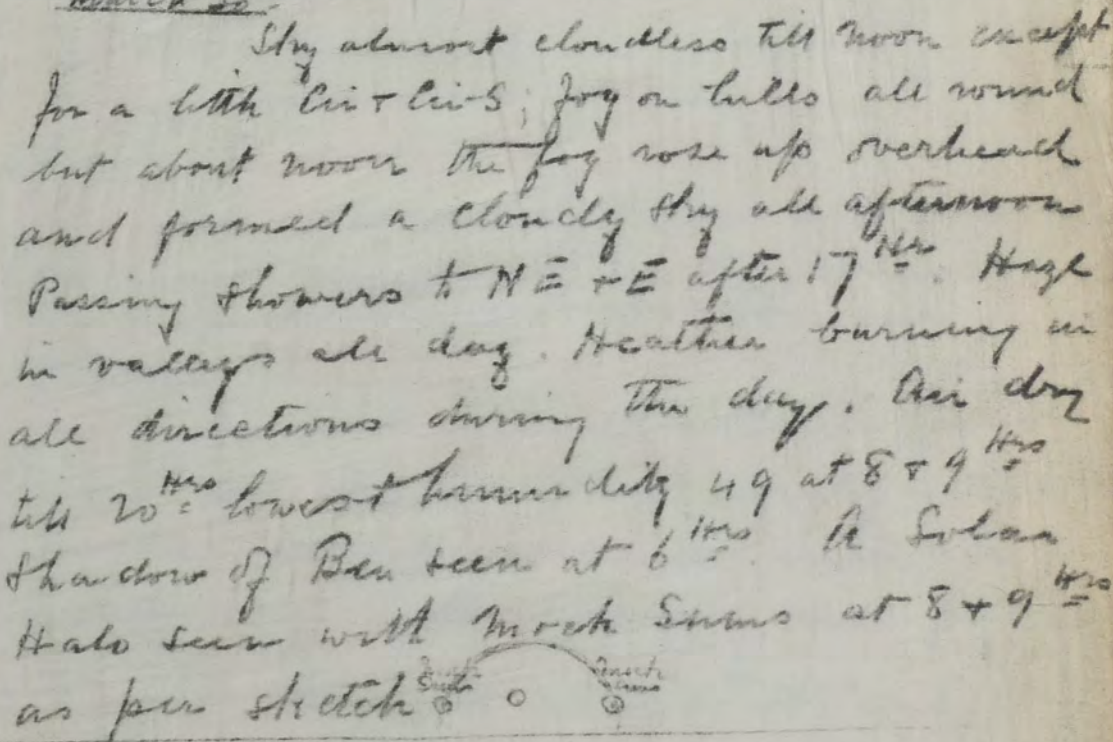 March 20.
Sky almost cloudless till noon except
for a little Cir + Cir-S; fog on hills all round
but about noon the fog rose up overhead
and formed a cloudy sky all afternoon
Passing showers to NE + E after 17 Hrs. Haze
in valleys all day. Heather burning in
all directions during the day. Air dry
till 20 Hrs lowest humidity 49 at 8 + 9 Hrs
Shadow of Ben seen at 6 Hrs. A Solar
Halo seen with Mock Suns at 8 + 9 Hrs
as per sketch
Mock Sun
Mock Suns